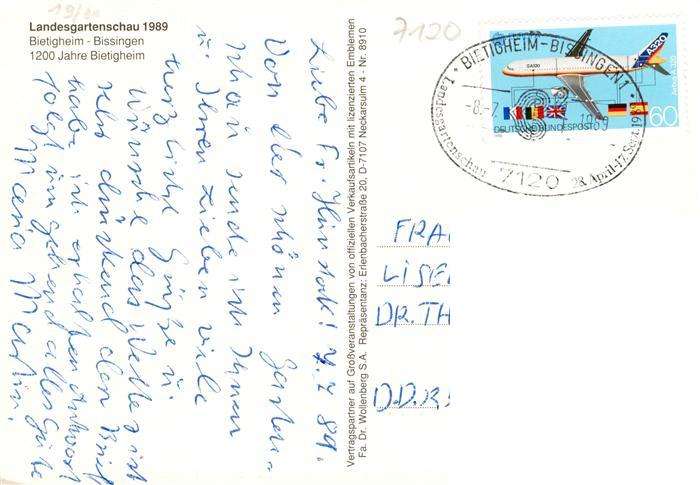 Landesgartenschau 1989
Bietigheim - Bissingen
1200 Jahre Bietigheim
Liebe Fr. 4.7.89.
Von der schönen Garten-
schau sende ich Ihnen
u. Ihren Lieben viele
herzliche Grüße u.
wünsche das Wetter ist
sehr drückend den Brief
habe ich erhalten Antwort
folgt umgehend alles Gute
Maria Martin.
Vertragspartner auf Großveranstaltungen von offiziellen Verkaufsartikeln mit lizenzierten Emblemen
Fa. Dr. Wollenberg S.A. Repräsentanz: Erlenbacherstraße 20, D-7107 Neckarsulm 4 - Nr: 8910
7120
BIETIGHEIM-BISSINGEN 1
Landesgartenschau
7120
A320
DEUTSCHE BUNDESPOST
60
FRA
LISE
DR. TH
D.D.R.